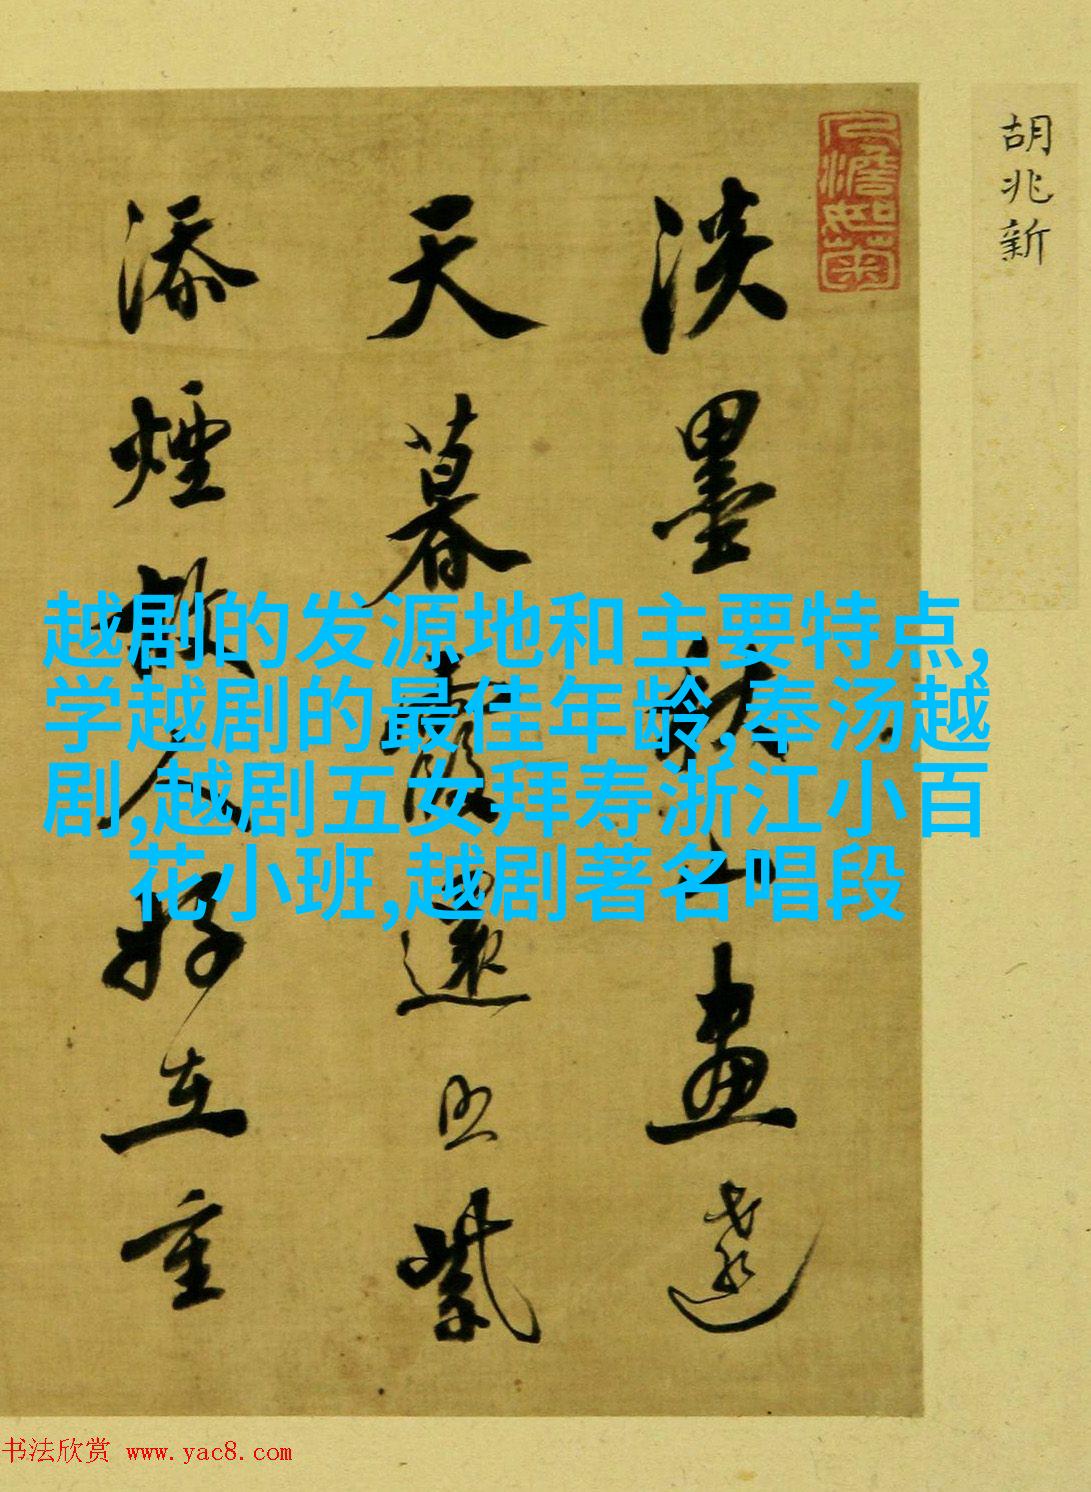 胡兆新
淡墨秋山畫遠
天暮霞還照紫
添煙故人好在重
越剧的发源地和主要特点,
学越剧的最佳年龄,奉汤越
剧,越剧五女拜寿浙江小百
花小班,越剧著名唱段
书法欣赏 www.yac8.com